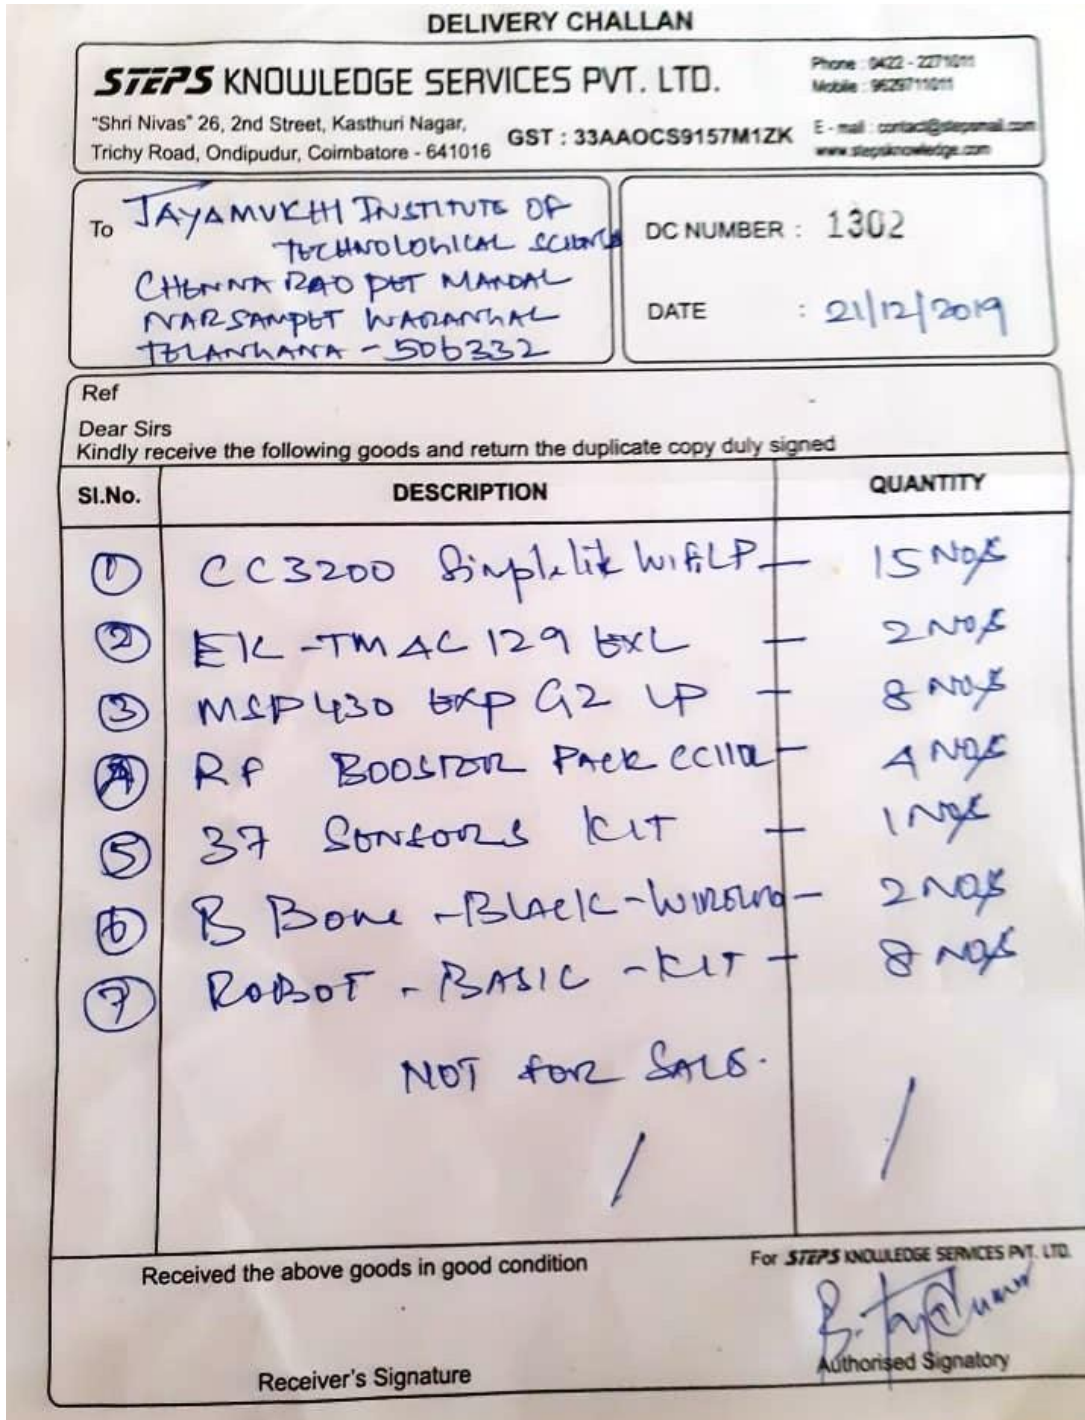 DELIVERY CHALLAN
STEPS KNOWLEDGE SERVICES PVT. LTD.
Phone : 0422 - 2271011
Mobile : 9629711011
"Shri Nivas" 26, 2nd Street, Kasthuri Nagar,
Trichy Road, Ondipudur, Coimbatore - 641016
GST : 33AAOCS9157M1ZK
E - mail : contact@stepsmail.com
www.stepsknowledge.com
To JAYAMUKHI INSTITUTE OF
TECHNOLOGICAL SCIENCES
CHENNA RAO PET MANDAL
NARSAMPET WARANGAL
TELANGANA - 506332
DC NUMBER : 1302
DATE : 21/12/2019
Ref
Dear Sirs
Kindly receive the following goods and return the duplicate copy duly signed
SI.No. DESCRIPTION QUANTITY
1 CC3200 Simplelik Wifi LP - 15 NOS
2 EK-TM4C129 EXL - 2 NOS
3 MSP430 EXP G2 LP - 8 NOS
4 RF BOOSTER PACK CC110L - 4 NOS
5 37 SENSORS KIT - 1 NOS
6 B Bone - BLACK - WIRELNG - 2 NOS
7 ROBOT - BASIC - KIT - 8 NOS
NOT FOR SALE.
Received the above goods in good condition
For STEPS KNOWLEDGE SERVICES PVT. LTD.
Receiver's Signature
Authorised Signatory